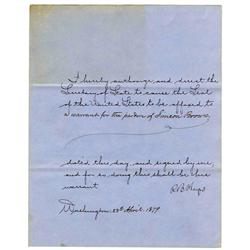 I hereby authorize and direct the
Secretary of State to cause the Seal
of the United States to be affixed to
a warrant for the pardon of Simeon Brown,
dated this day, and signed by me,
and for so doing this shall be his
warrant.
R B Hayes
Washington 23d 1879